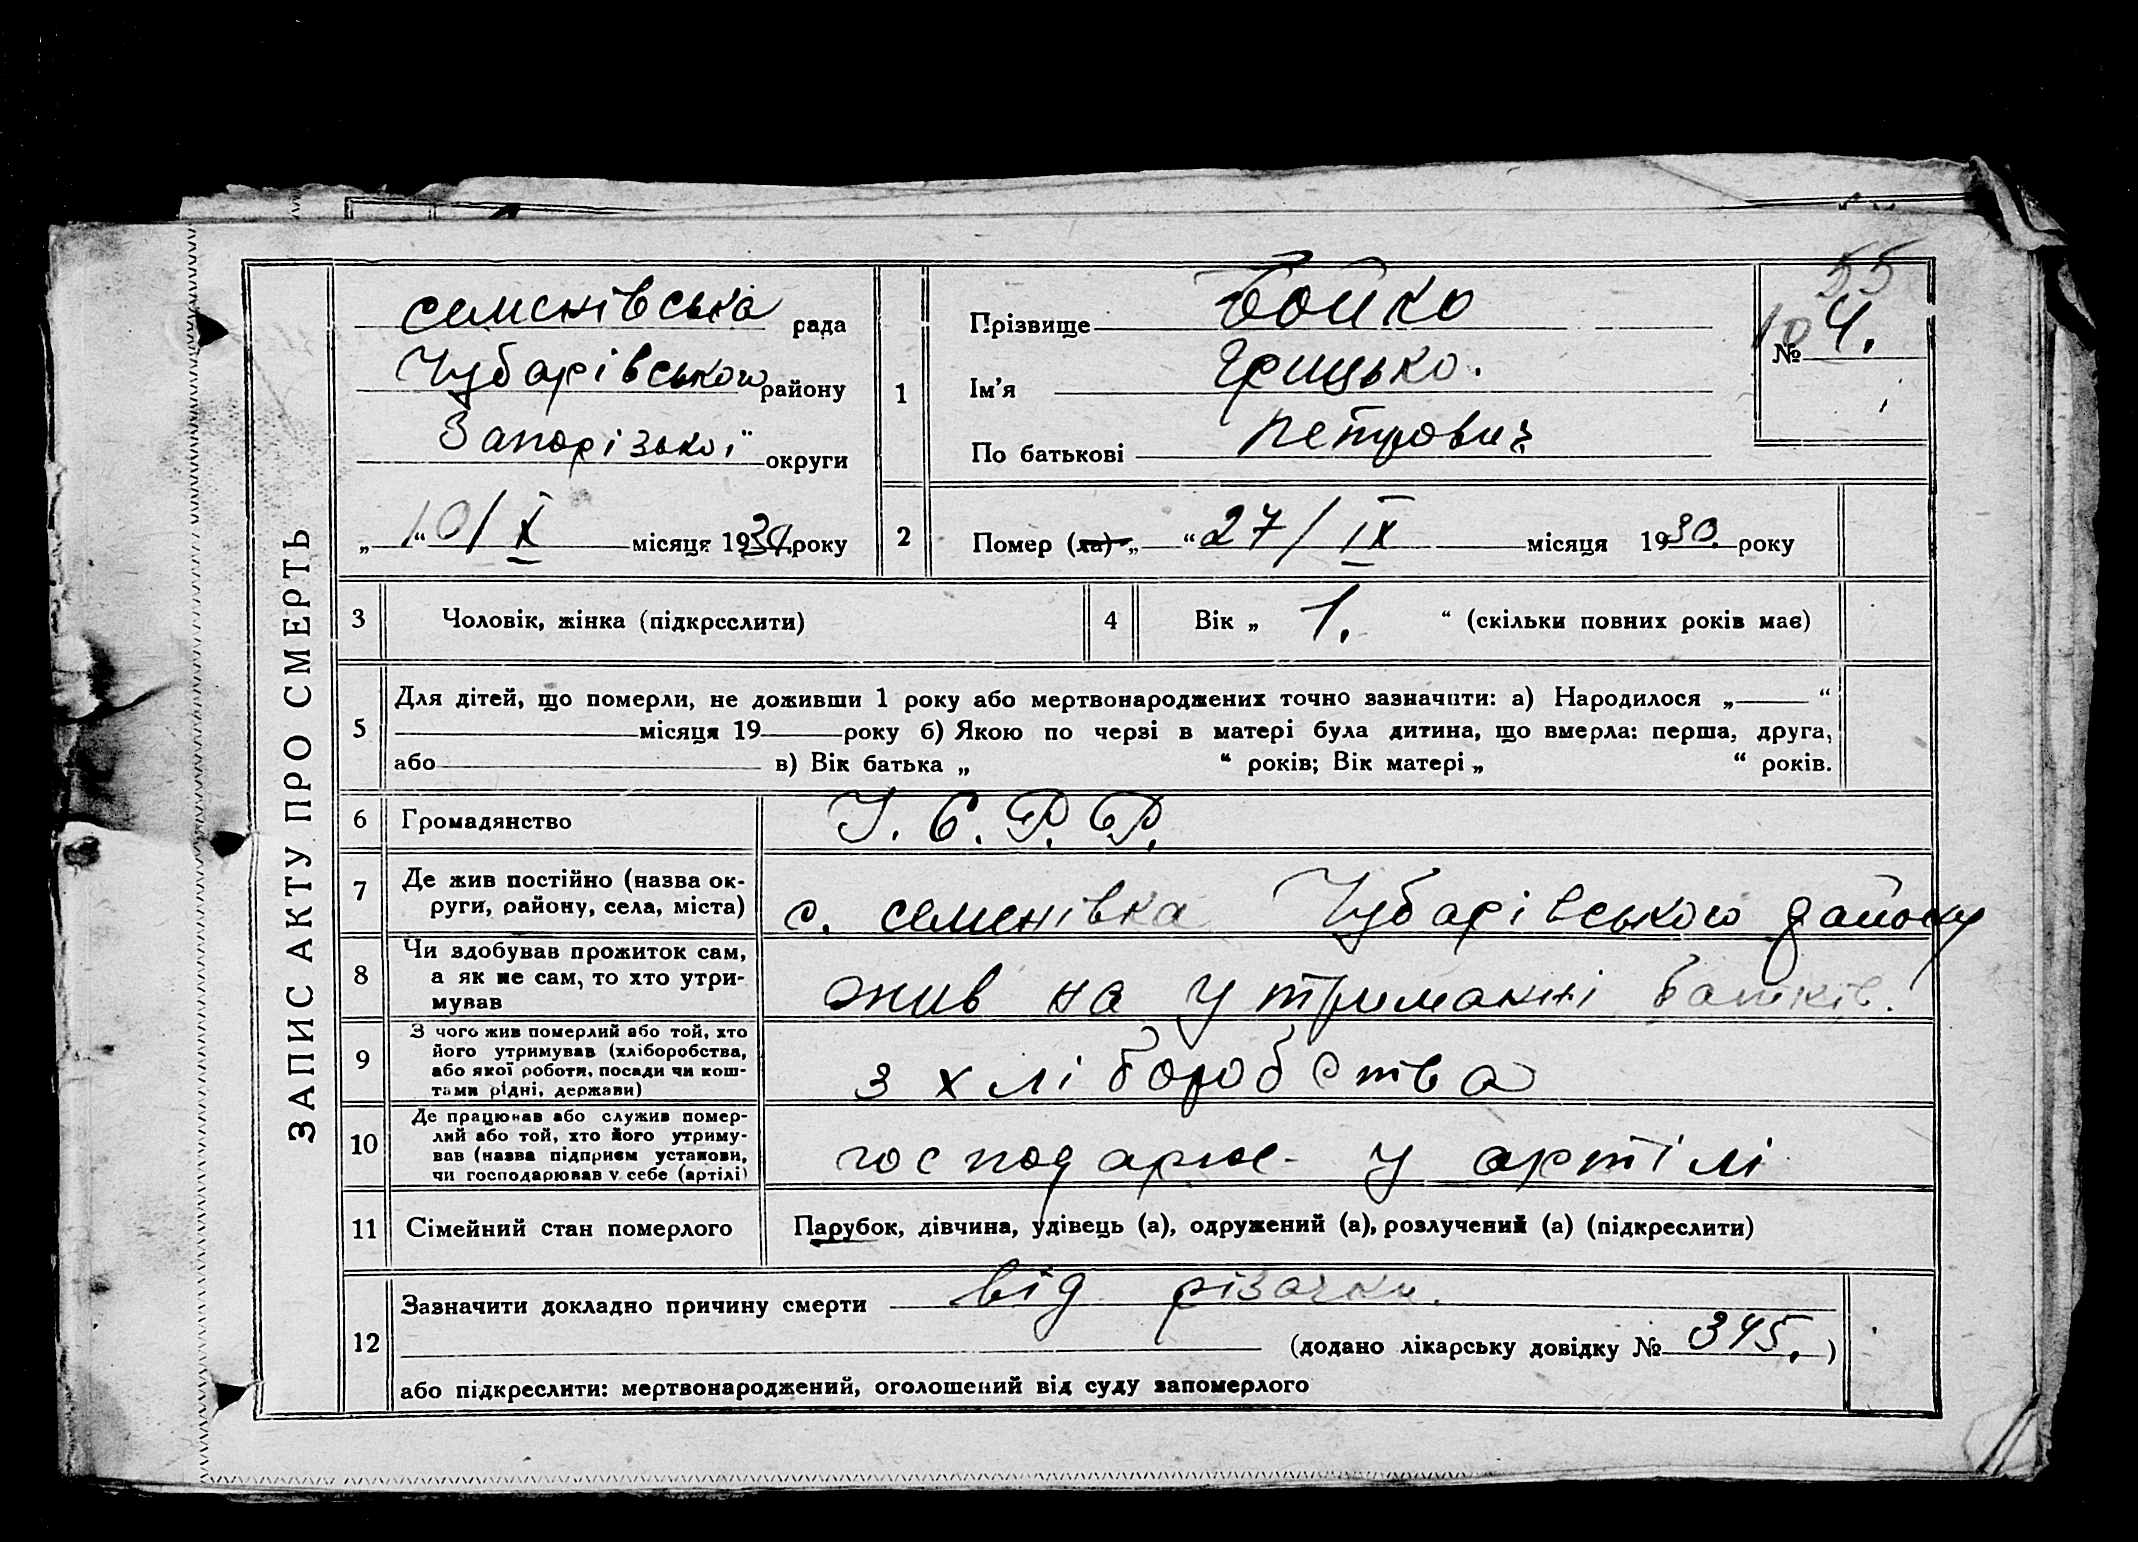 ЗАПИС АКТУ ПРО СМЕРТЬ
семенівська рада
Чубарівського району
Запорізької округи
„ 10/X “ місяця 1930 року
1
Прізвище Бойко
Ім’я Грицько.
По батькові Петрович
55
№ 104.
2
Помер (ла) „ “ 27/IX місяця 1930. року
3
Чоловік, жінка (підкреслити)
4
Вік „ 1. “ (скільки повних років має)
5
Для дітей, що померли, не доживши 1 року або мертвонароджених точно зазначити: а) Народилося „ “
місяця 19 року б) Якою по черзі в матері була дитина, що вмерла: перша, друга,
або в) Вік батька „ “ років; Вік матері „ “ років.
6
Громадянство У. С. Р. Р.
7
Де жив постійно (назва ок-
руги, району, села, міста)
с. семенівка Чубарівського району
8
Чи здобував прожиток сам,
а як не сам, то хто утри-
мував
жив на утриманні батьків.
9
З чого жив померлий або той, хто
його утримував (хліборобства,
або якої роботи, посади чи кош-
тами рідні, держави)
з хліборобства
10
Де працював або служив помер-
лий або той, хто його утриму-
вав (назва підприєм установи,
чи господарював у себе (артілі)
господарює у артілі
11
Сімейний стан померлого
Парубок, дівчина, удівець (а), одружений (а), розлучений (а) (підкреслити)
12
Зазначити докладно причину смерти від різачки.
(додано лікарську довідку № 345. )
або підкреслити: мертвонароджений, оголошений від суду запомерлого